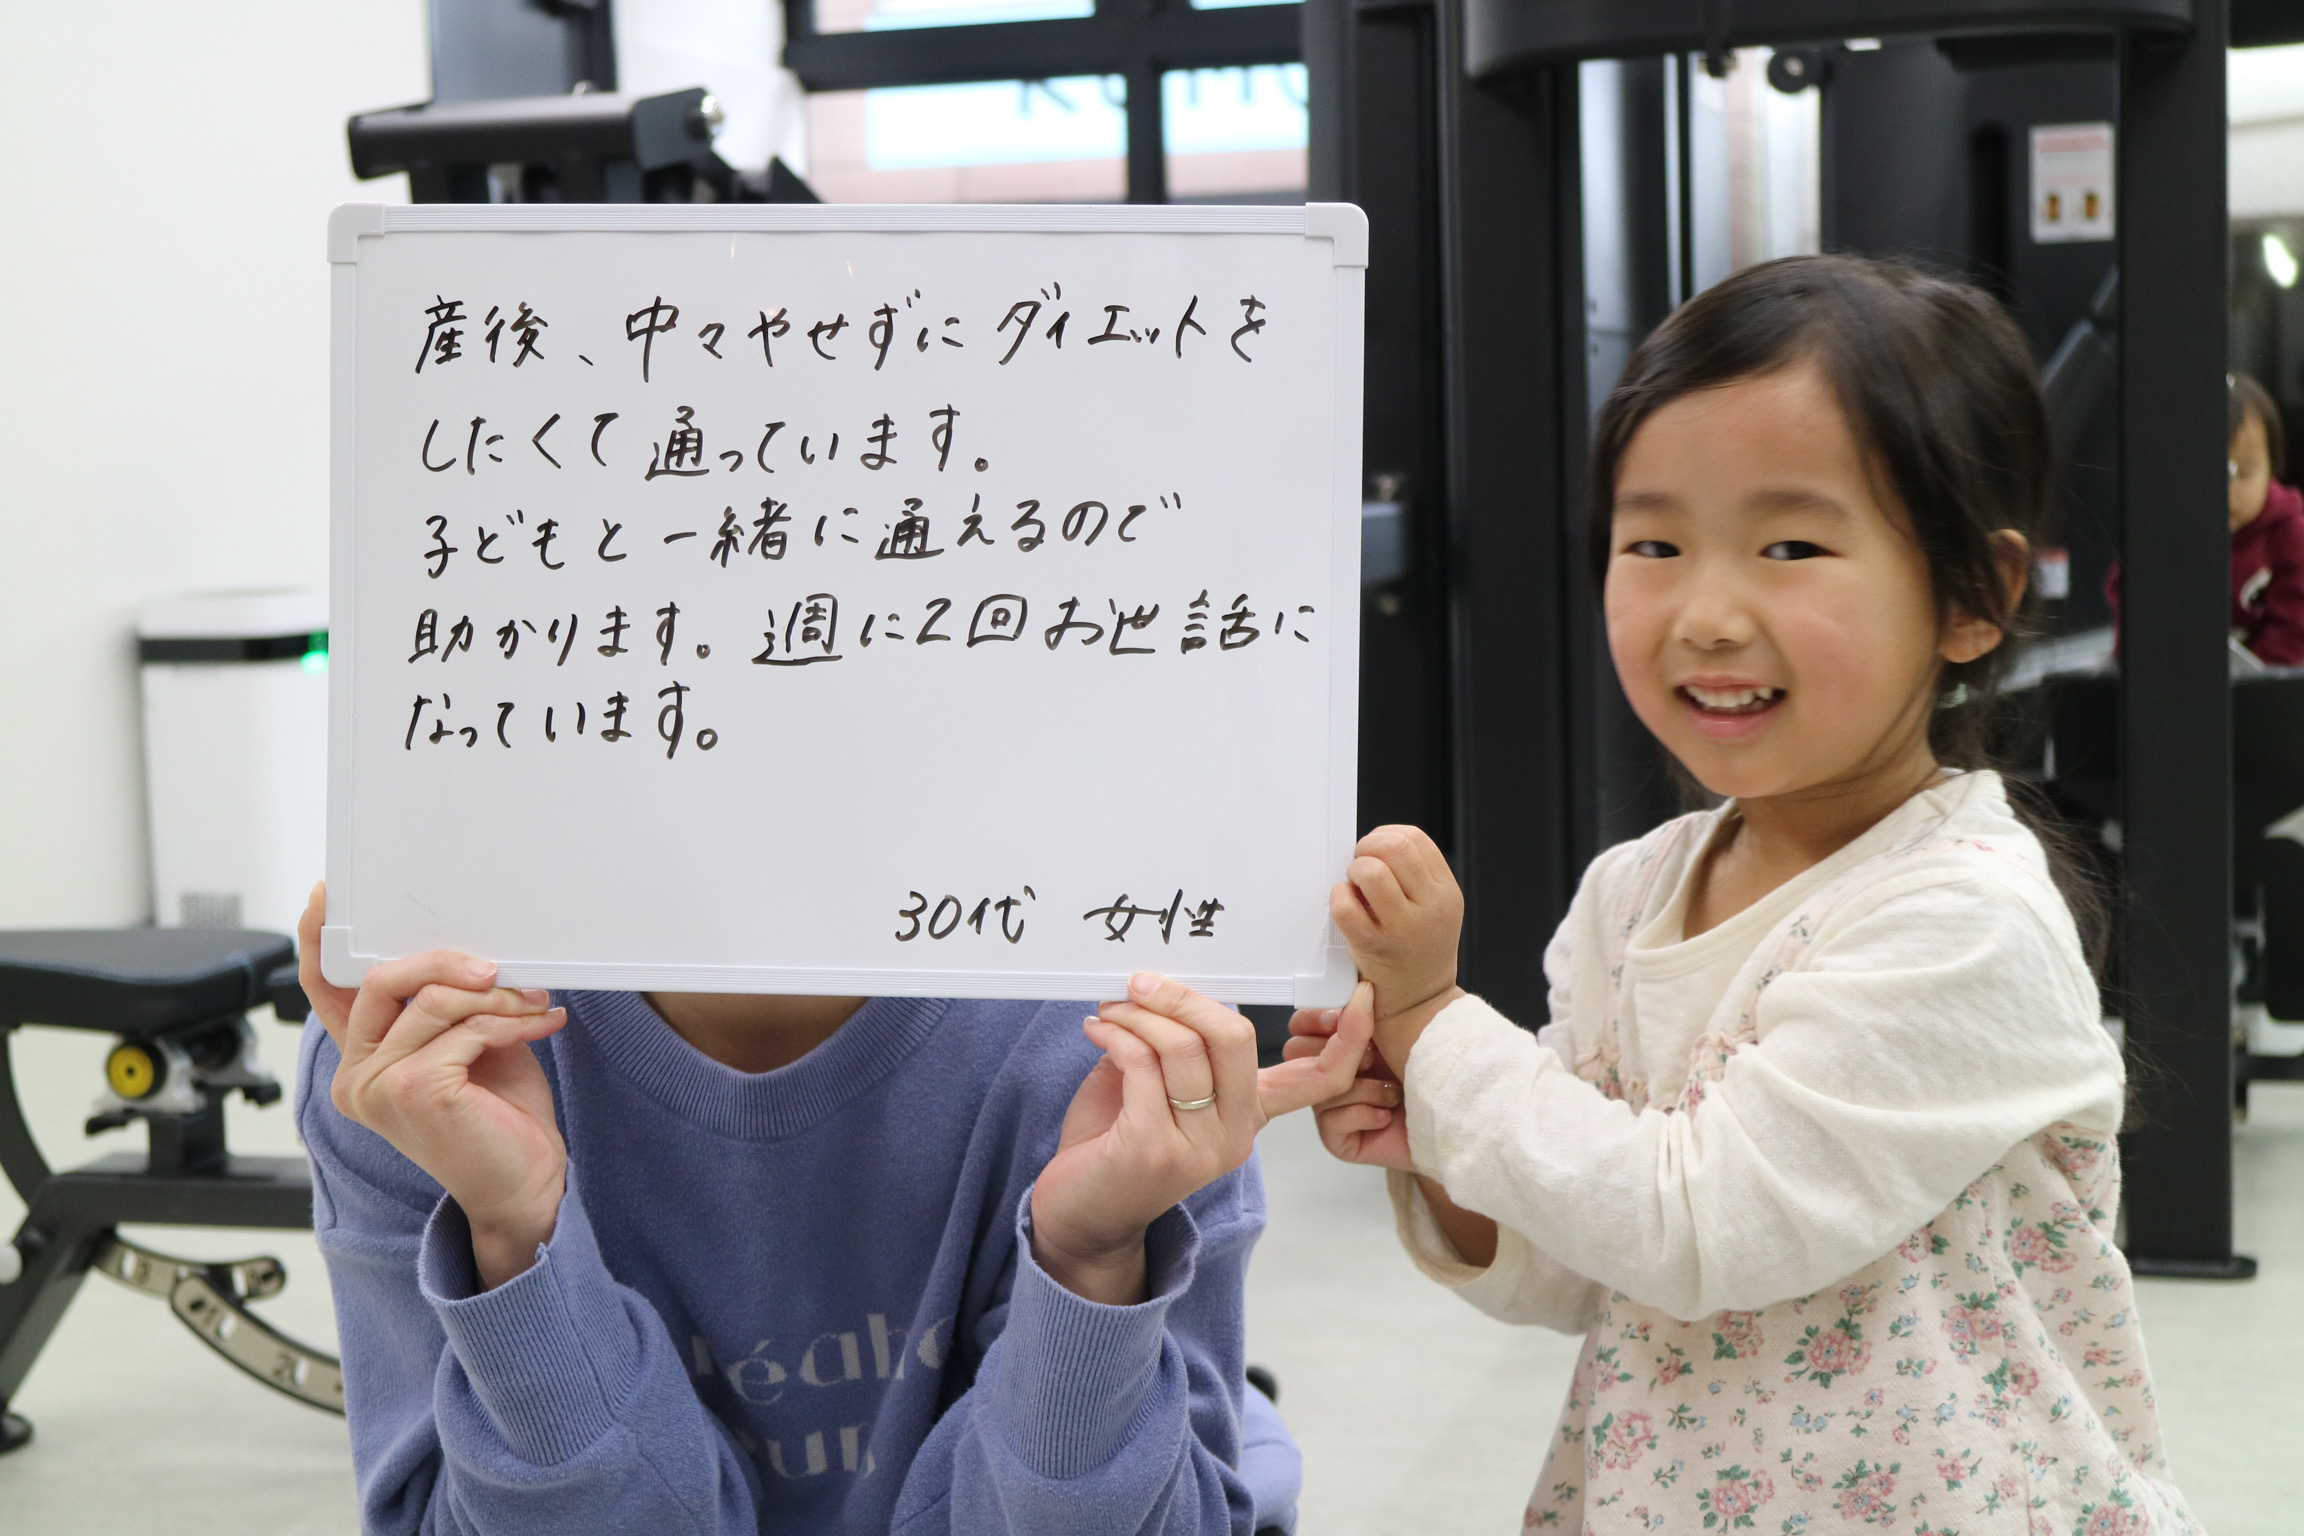 産後、中々やせずにダイエットを
したくて通っています。
子どもと一緒に通えるので
助かります。週に2回お世話に
なっています。
30代 女性
20